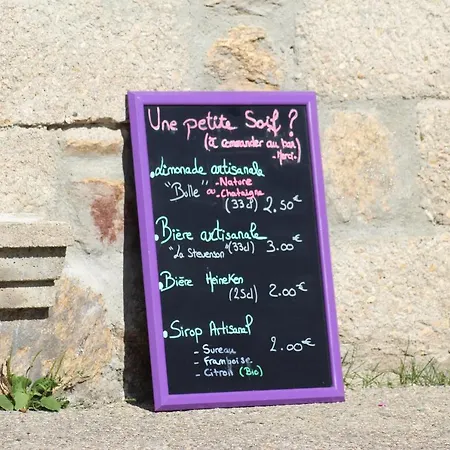 Une petite Soif ?
(à commander au bar)
- Merci -
• Limonade artisanale
"Bulle" - Nature
ou - Chataigne
(33cl) 2.50€
• Bière artisanale
"La Stevenson" (33cl) 3.00€
• Bière Heineken
(25cl) 2.00€
• Sirop Artisanal
- Sureau
- Framboise
- Citron (Bio)
2.00€